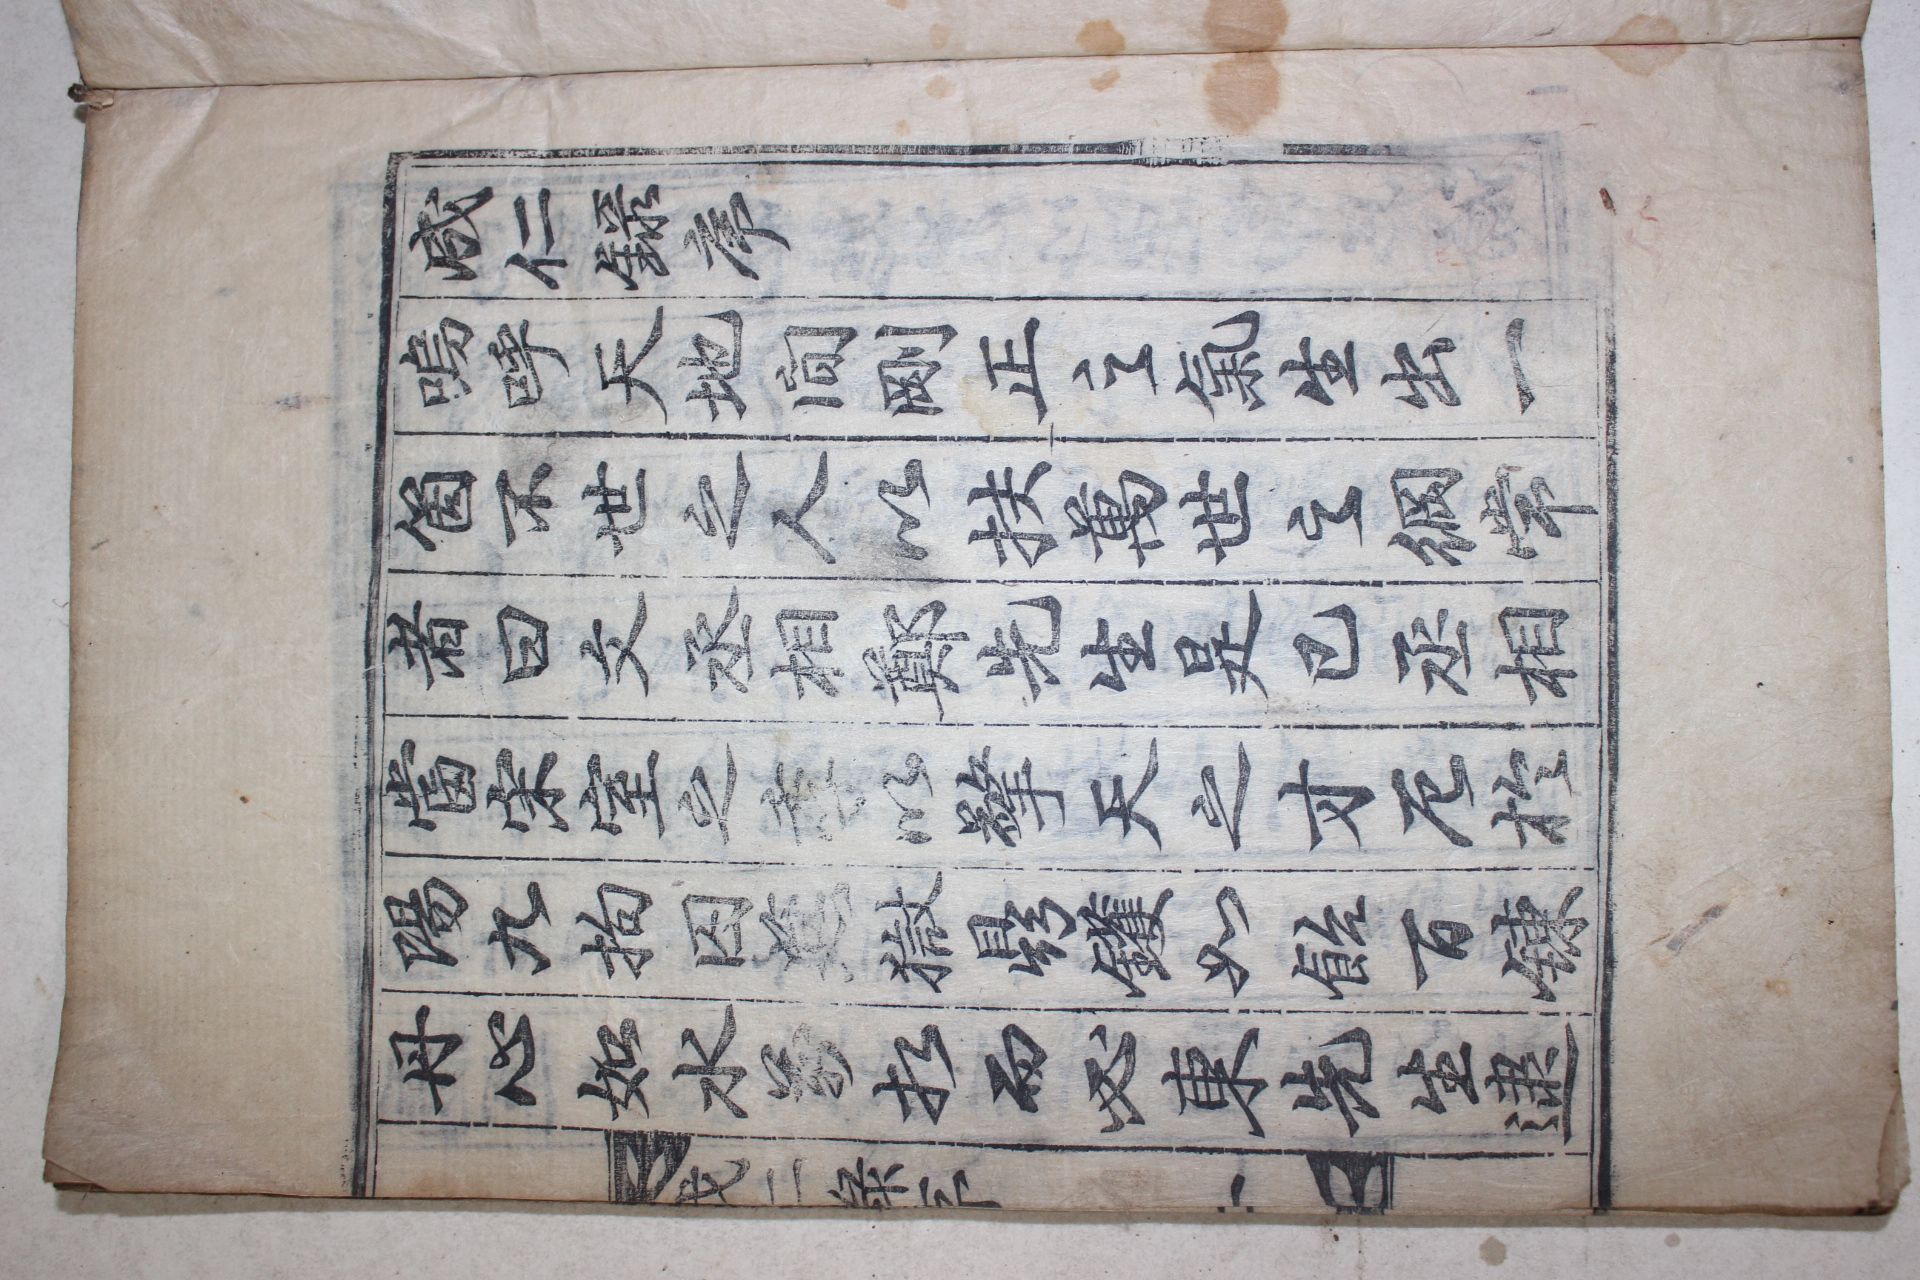 成仁錄序
嗚呼天地間剛正之氣生出一
箇不世之人以扶萬世之綱常
者曰文丞相鄭先生是已丞相
當宋室之季以擎天之才厄於
陽九拘囚燕獄鼎鑊如飴百鍊
丹心如水萬折而必東先生逮
成仁錄序
一